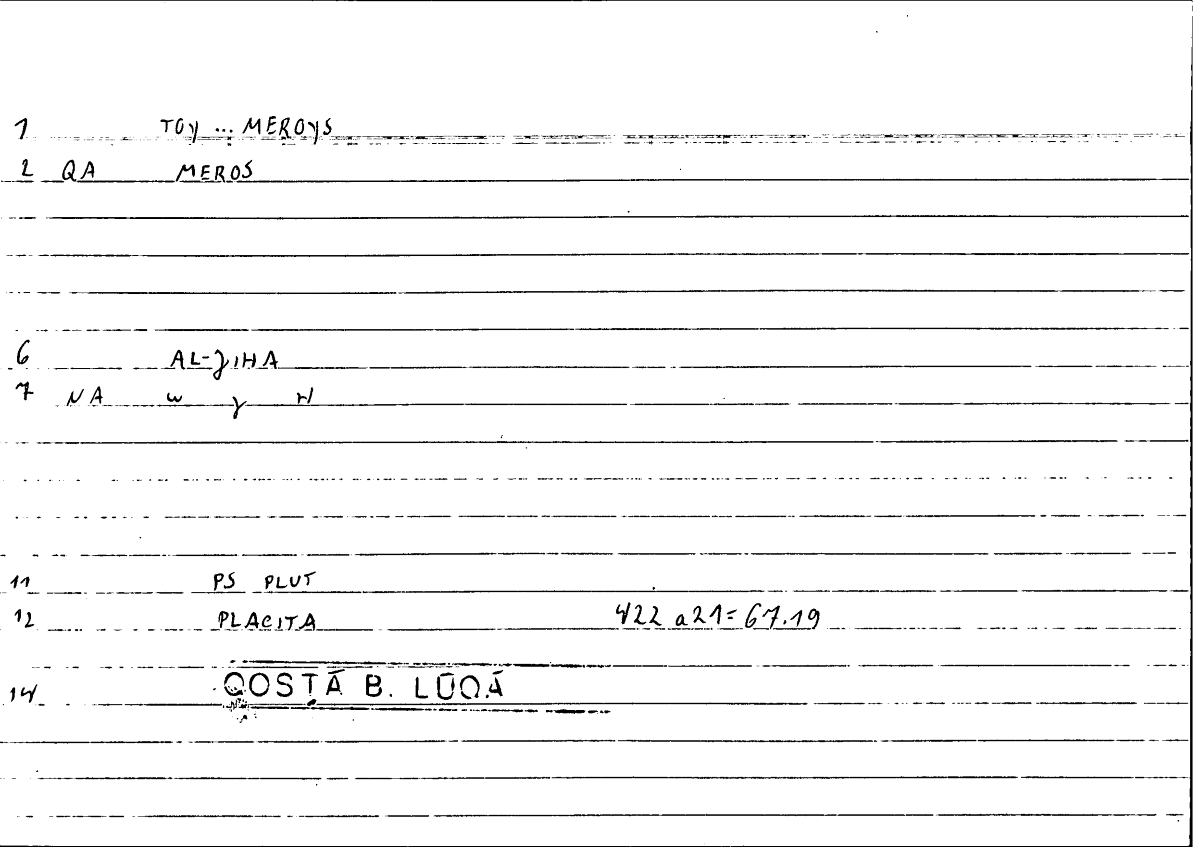 1 TOY ... MEROYS
2 QA MEROS
6 AL-ǦIHA
7 NA w ǧ h
11 PS PLUT
12 PLACITA 422 a21= 67.19
14 QOSṬĀ B. LŪQĀ